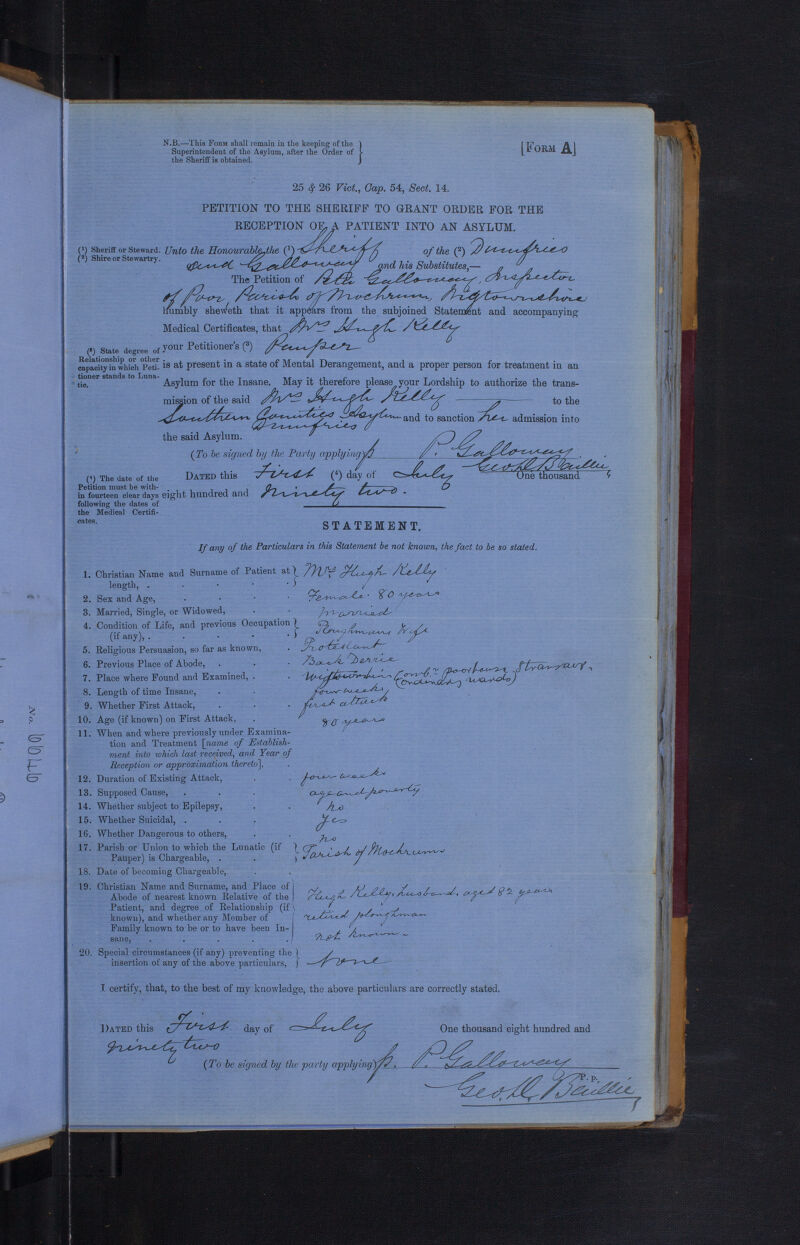 N.B.—This Form shall remain in the keeping of the
Superintendent of the Asylum, after the Order of
the Sheriff is obtained.
[Form A]
25 & 26 Vict., Cap. 54, Sect. 14.
PETITION TO THE SHERIFF TO GRANT ORDER FOR THE
RECEPTION OF A PATIENT INTO AN ASYLUM.
(¹) Sheriff or Steward.
(²) Shire or Stewartry.
Unto the Honourable the (¹) Sheriff of the (²) Dumfries
and Galloway and his Substitutes,—
The Petition of Peter Galloway, Inspector
of Poor, Parish of Mochrum, Wigtownshire
humbly sheweth that it appears from the subjoined Statement and accompanying
Medical Certificates, that Mrs Hugh Kelly
(³) State degree of
Relationship or other
capacity in which Peti-
tioner stands to Luna-
tic.
your Petitioner's (³) Pauper
is at present in a state of Mental Derangement, and a proper person for treatment in an
Asylum for the Insane. May it therefore please your Lordship to authorize the trans-
mission of the said Mrs Hugh Kelly to the
Southern Counties Asylum and to sanction her admission into
Dumfries
the said Asylum.
(To be signed by the Party applying) p P. Galloway
Geo. D. Baillie,
(⁴) The date of the
Petition must be with-
in fourteen clear days
following the dates of
the Medical Certifi-
cates.
Dated this First (⁴) day of July One thousand
eight hundred and Ninety two.
STATEMENT.
If any of the Particulars in this Statement be not known, the fact to be so stated.
1. Christian Name and Surname of Patient at length, . Mrs Hugh Kelly
2. Sex and Age, Female 80 years
3. Married, Single, or Widowed, Married
4. Condition of Life, and previous Occupation (if any), . Ploughmans Wife
5. Religious Persuasion, so far as known, Protestant
6. Previous Place of Abode, Back Derrie
7. Place where Found and Examined, Wigtownshire Combn. poorhouse Stranraer.
(ordinary wards)
8. Length of time Insane, four weeks
9. Whether First Attack, first attack
10. Age (if known) on First Attack, 80 years
11. When and where previously under Examina-
tion and Treatment [name of Establish-
ment into which last received, and Year of
Reception or approximation thereto],
12. Duration of Existing Attack, four weeks
13. Supposed Cause, age and poverty
14. Whether subject to Epilepsy, no
15. Whether Suicidal, yes
16. Whether Dangerous to others, no
17. Parish or Union to which the Lunatic (if
Pauper) is Chargeable, Parish of Mochrum
18. Date of becoming Chargeable,
19. Christian Name and Surname, and Place of
Abode of nearest known Relative of the
Patient, and degree of Relationship (if
known), and whether any Member of
Family known to be or to have been In-
sane,
Hugh Kelly, husband, aged 82 years
retired ploughman
not known -
20. Special circumstances (if any) preventing the
insertion of any of the above particulars, None
I certify, that, to the best of my knowledge, the above particulars are correctly stated.
Dated this First day of July One thousand eight hundred and
ninety two
(To be signed by the party applying) p. P. Galloway
P.p.
Geo. D. Baillie,